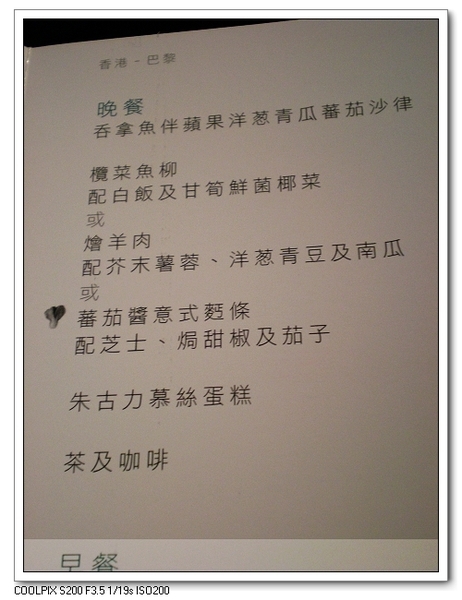 香港－巴黎
晚餐
吞拿魚伴蘋果洋葱青瓜蕃茄沙律
欖菜魚柳
配白飯及甘筍鮮菌椰菜
或
燴羊肉
配芥末薯蓉、洋葱青豆及南瓜
或
蕃茄醬意式麪條
配芝士、焗甜椒及茄子
朱古力慕絲蛋糕
茶及咖啡
早餐
COOLPIX S200 F3.5 1/19s ISO200